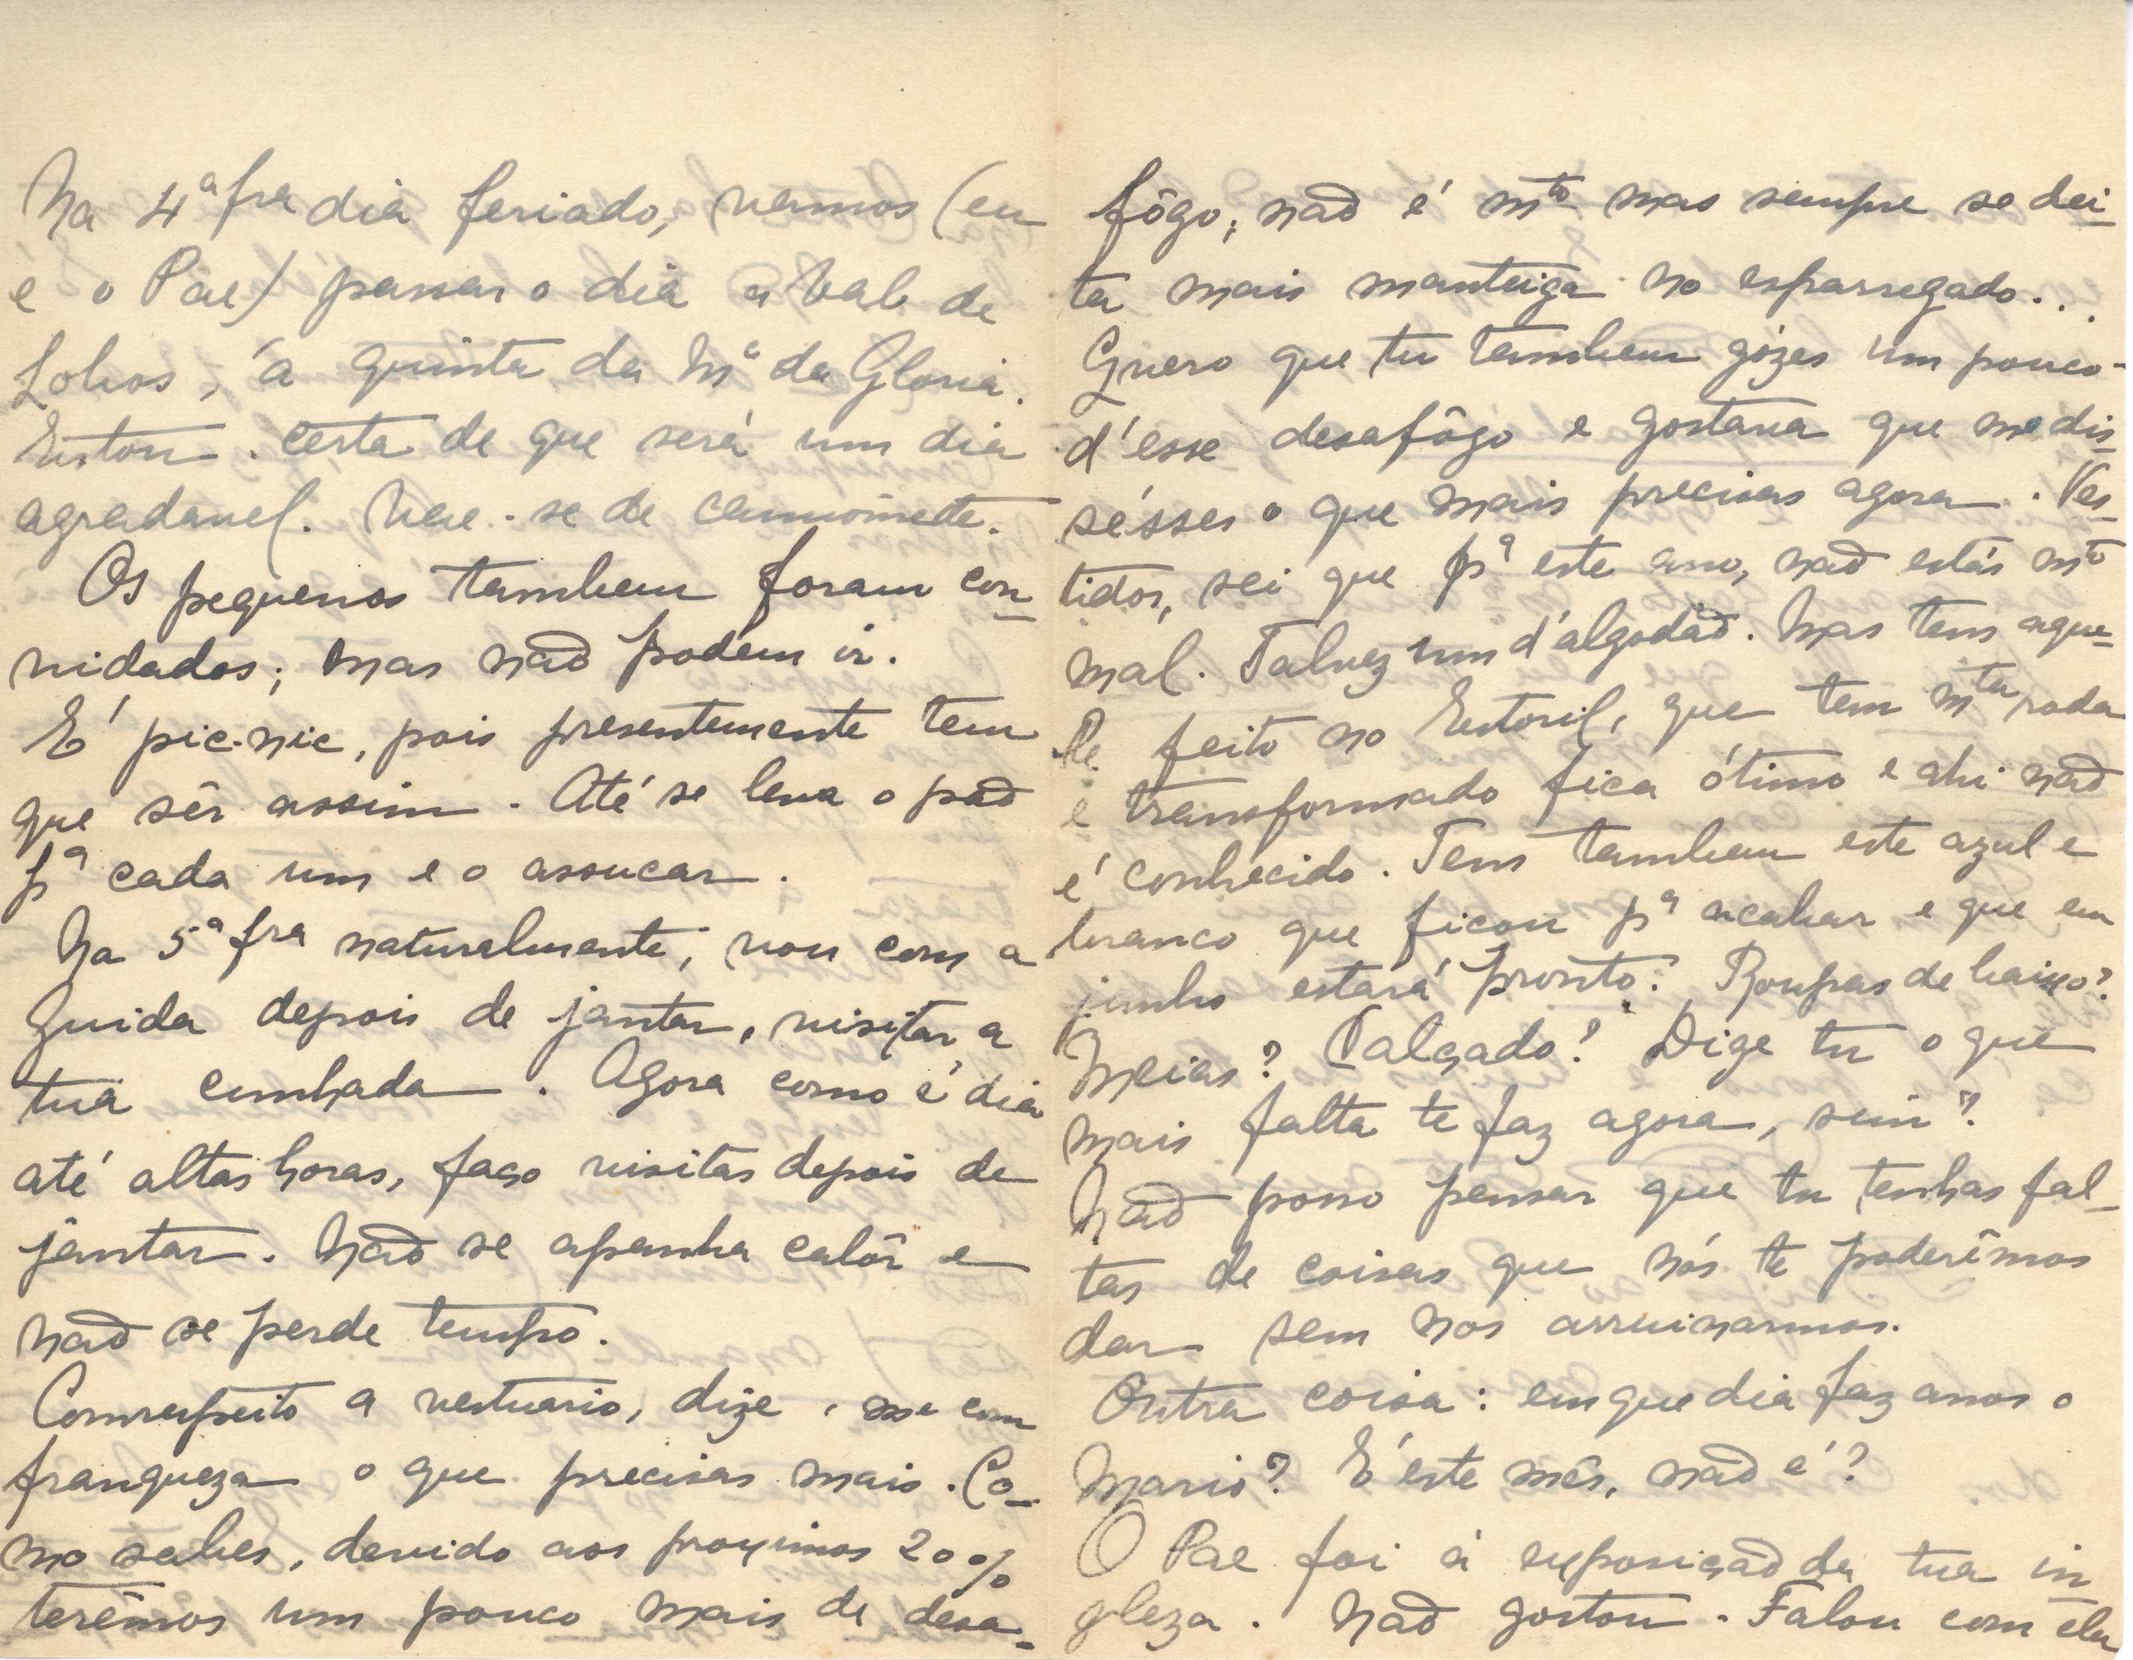 Na 4ª fra dia feriado, vamos (eu
e o Pae) passar o dia a Val de
Lobos, á quinta da Mª da Gloria.
Estou certa de que será um dia
agradavel. Vae-se de camionete.
Os pequenos tambem foram con-
vidados; mas não podem ir.
É pic-nic, pois presentemente tem
que sêr assim. Até se leva o pão
pª cada um e o assucar.
Na 5ª fra naturalmente, vou com a
Guida depois de jantar, visitar a
tua cunhada. Agora como é dia
até altas horas, faço visitas depois de
jantar. Não se apanha calôr e
não se perde tempo.
Com respeito a vestuario, dize-me com
franqueza o que precisas mais. Co-
mo sabes, devido aos proximos 20%
terêmos um pouco mais de desa-
fôgo; não é mto mas sempre se dei-
ta mais manteiga no esparregado...
Quero que tu tambem gózes um pouco
d'esse desafôgo e gostava que me dis-
sésses o que mais precisas agora. Ves-
tidos, sei que pª este ano, não estás mto
mal. Talvez um d'algodão. Mas tens aque-
le feito no Estoril, que tem mta roda
e transformado fica ótimo e ahi não
é conhecido. Tens tambem este azul e
branco que ficou pª acabar e que em
junho estará pronto. Roupas de baixo?
Meias? Calçado? Dize tu o que
mais falta te faz agora, sim?
Não posso pensar que tu tenhas fal-
tas de coisas que nós te poderêmos
dar sem nos arruinarmos.
Outra coisa: em que dia faz anos o
Mario? É este mês, não é?
O Pae foi á exposição da tua in
gleza. Não gostou. Falou com ela